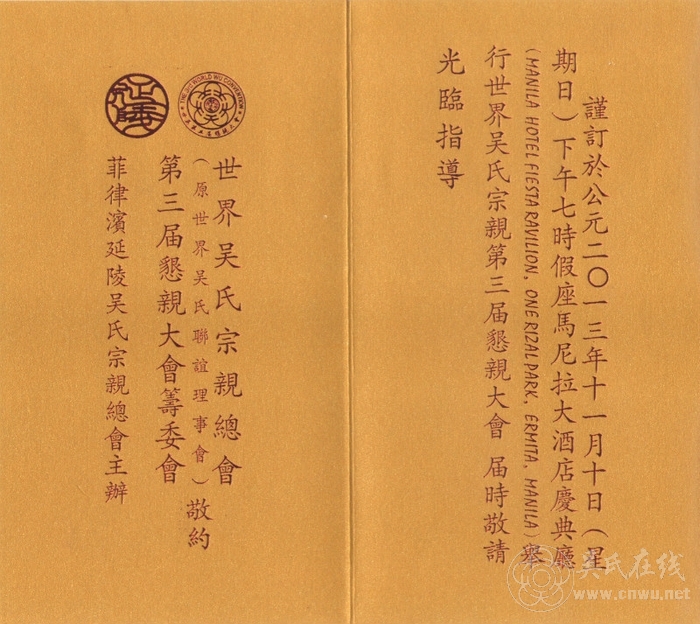 謹訂於公元二〇一三年十一月十日（星
期日）下午七時假座馬尼拉大酒店慶典廳
(MANILA HOTEL FIESTA RAVILION, ONE RIZAL PARK, ERMITA, MANILA)舉
行世界吳氏宗親第三届懇親大會 届時敬請
光臨指導
THE 3RD WORLD WU CONVENTION
世界吳氏宗親總會
（原世界吳氏聯誼理事會）敬約
第三届懇親大會籌委會
菲律濱延陵吳氏宗親總會主辦
吴氏在线
www.cnwu.net